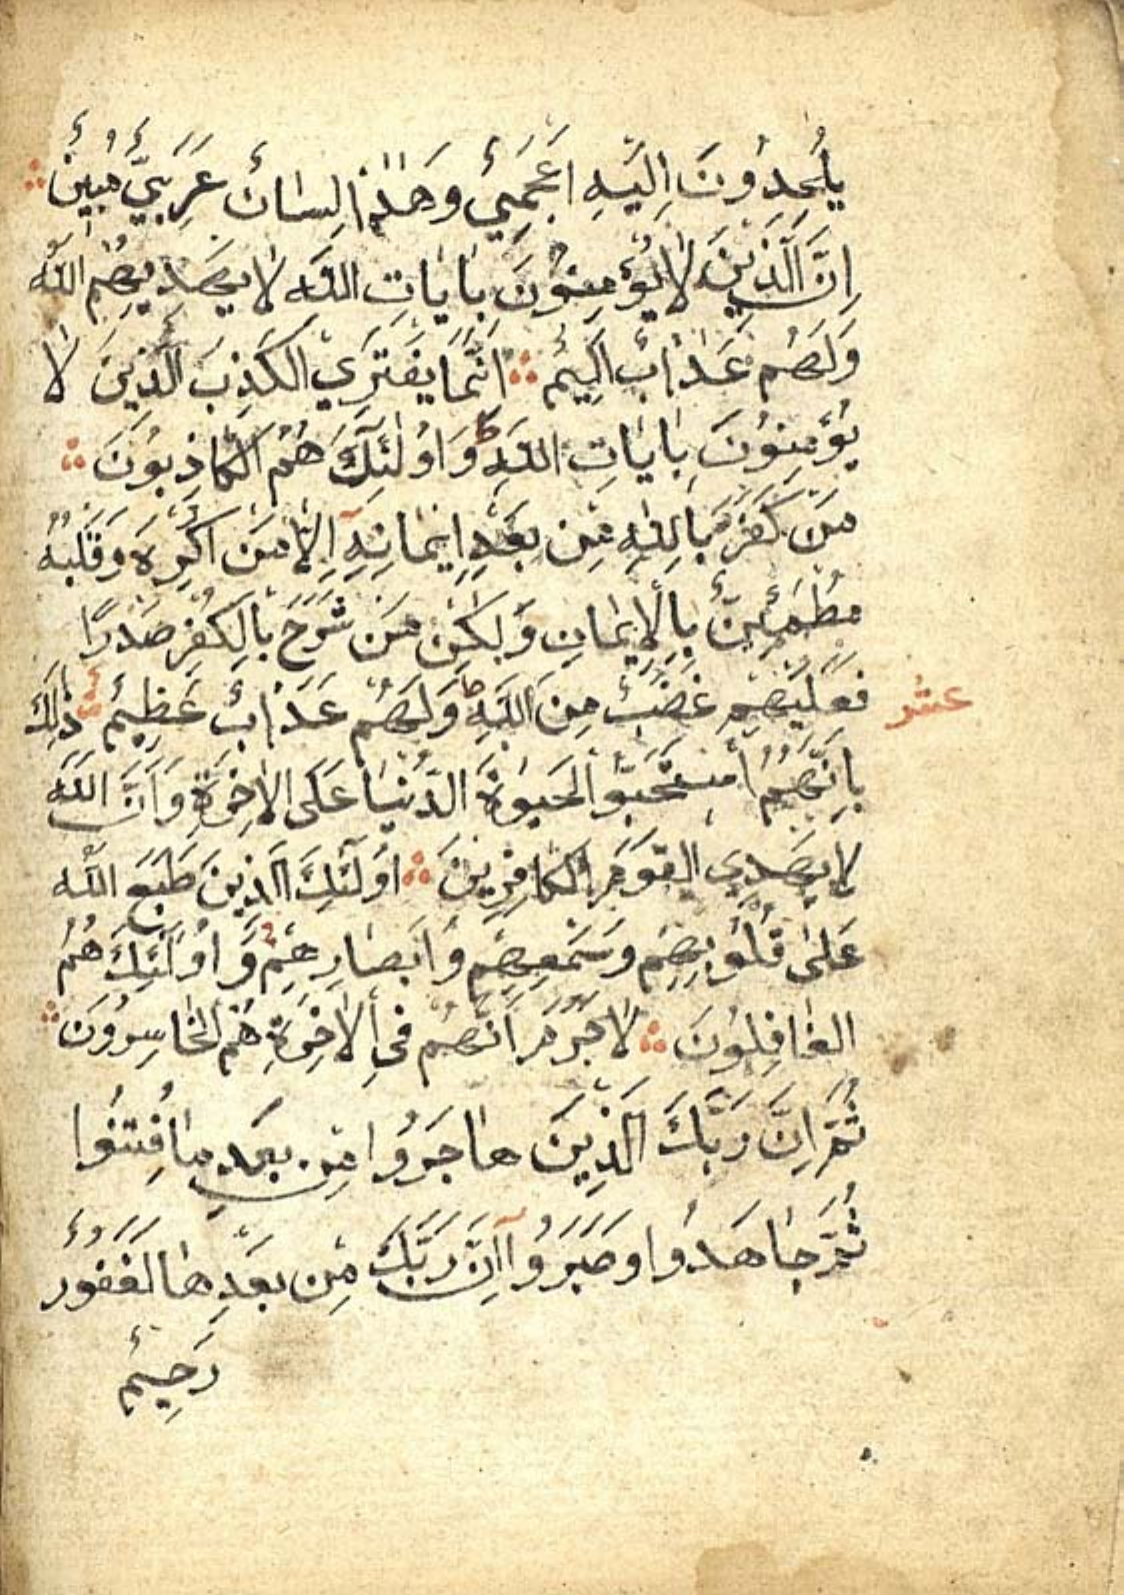 يُلْحِدُونَ اِلَيْهِ اَعْجَمِيٌّ وَهٰذَا لِسَانٌ عَرَبِيٌّ مُبِينٌ
اِنَّ الَّذِينَ لَا يُؤْمِنُونَ بِاٰيَاتِ اللّٰهِ لَا يَهْدِيهِمُ اللّٰهُ
وَلَهُمْ عَذَابٌ اَلِيمٌ اِنَّمَا يَفْتَرِي الْكَذِبَ الَّذِينَ لَا
يُؤْمِنُونَ بِاٰيَاتِ اللّٰهِ ط وَاُولٰئِكَ هُمُ الْكَاذِبُونَ
مَنْ كَفَرَ بِاللّٰهِ مِنْ بَعْدِ اِيمَانِهِ اِلَّا مَنْ اُكْرِهَ وَقَلْبُهُ
مُطْمَئِنٌّ بِالْاِيمَانِ وَلٰكِنْ مَنْ شَرَحَ بِالْكُفْرِ صَدْرًا
فَعَلَيْهِمْ غَضَبٌ مِنَ اللّٰهِ ط وَلَهُمْ عَذَابٌ عَظِيمٌ ذٰلِكَ
عشر
بِاَنَّهُمُ اسْتَحَبُّوا الْحَيٰوةَ الدُّنْيَا عَلَى الْاٰخِرَةِ وَاَنَّ اللّٰهَ
لَا يَهْدِي الْقَوْمَ الْكَافِرِينَ اُولٰئِكَ الَّذِينَ طَبَعَ اللّٰهُ
عَلٰى قُلُوبِهِمْ وَسَمْعِهِمْ وَاَبْصَارِهِمْ وَاُولٰئِكَ هُمُ
الْغَافِلُونَ لَا جَرَمَ اَنَّهُمْ فِي الْاٰخِرَةِ هُمُ الْخَاسِرُونَ
ثُمَّ اِنَّ رَبَّكَ الَّذِينَ هَاجَرُوا مِنْ بَعْدِ مَا فُتِنُوا
ثُمَّ جَاهَدُوا وَصَبَرُوا اِنَّ رَبَّكَ مِنْ بَعْدِهَا لَغَفُورٌ
رَحِيمٌ